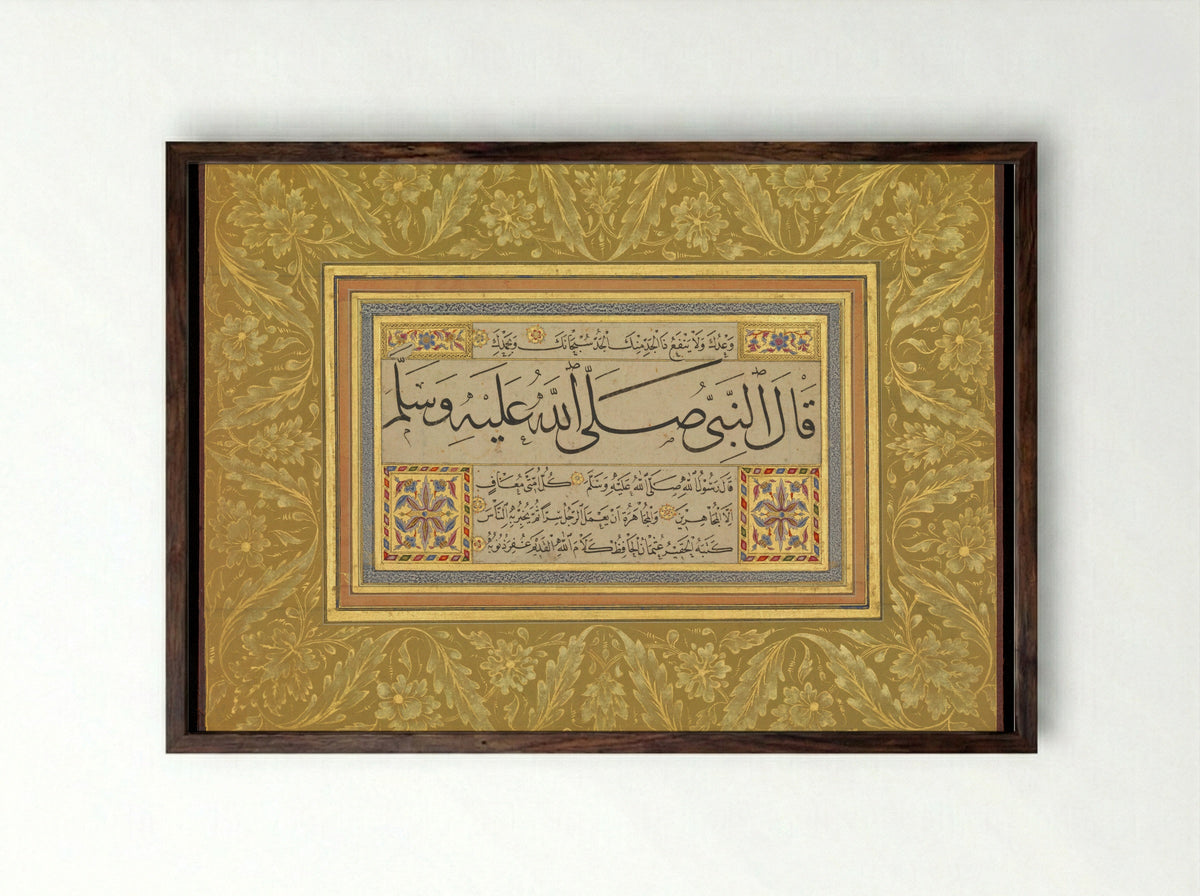 وَعْدُكَ وَلَا يَنْفَعُ ذَا الْجَدِّ مِنْكَ الْجَدُّ سُبْحَانَكَ وَبِحَمْدِكَ
قَالَ النَّبِيُّ صَلَّى اللهُ عَلَيْهِ وَسَلَّمَ
قَالَ رَسُولُ اللهِ صَلَّى اللهُ عَلَيْهِ وَسَلَّمَ كُلُّ أُمَّتِي مُعَافًى
إِلَّا الْمُجَاهِرِينَ وَالْمُجَاهَرَةُ أَنْ يَعْمَلَ الرَّجُلُ سِرًّا ثُمَّ يُخْبِرُ بِهِ النَّاسَ
كَتَبَهُ الْحَقِيرُ عُثْمَانُ الْحَافِظُ كَلَامَ اللهِ الْقَدِيمِ غُفِرَ ذُنُوبُهُ